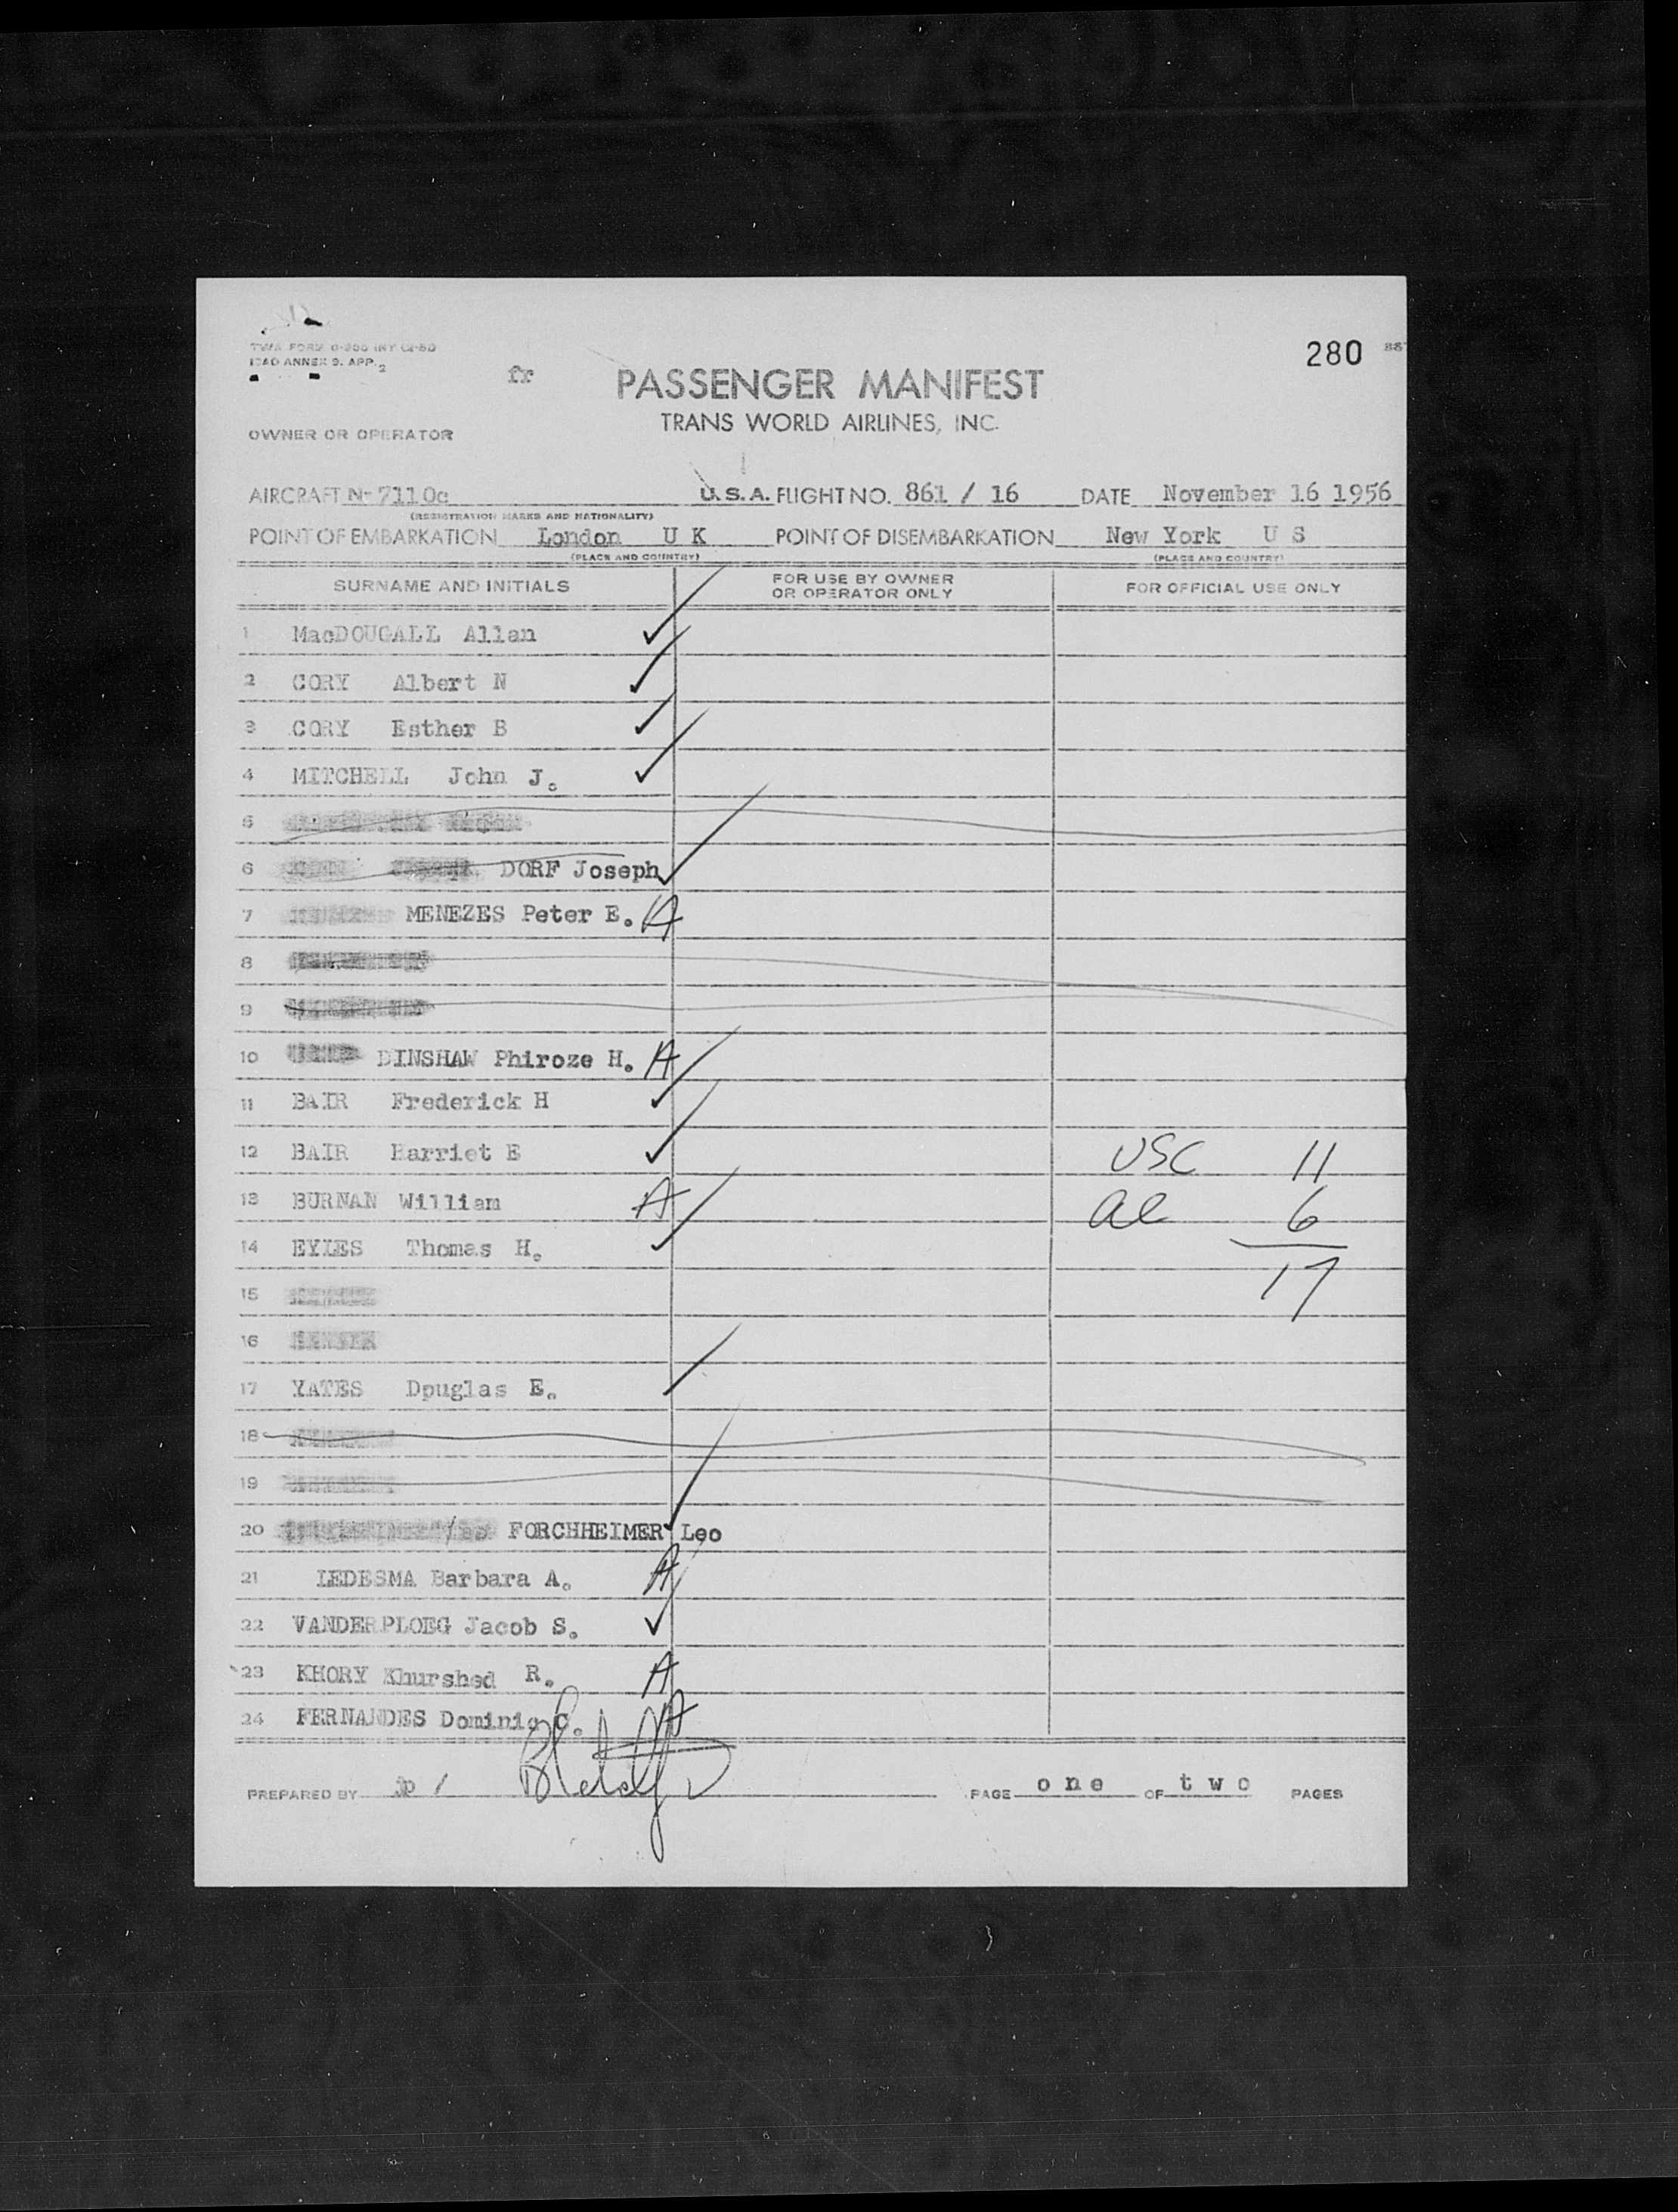 TWA FORM
ICAO ANNEX 9. APP. 2
280
fr
PASSENGER MANIFEST
TRANS WORLD AIRLINES, INC.
OWNER OR OPERATOR
AIRCRAFT N-7110c U.S.A. FLIGHT NO. 861 / 16 DATE November 16 1956
(REGISTRATION MARKS AND NATIONALITY)
POINT OF EMBARKATION London U K POINT OF DISEMBARKATION New York U S
(PLACE AND COUNTRY) (PLACE AND COUNTRY)
SURNAME AND INITIALS FOR USE BY OWNER OR OPERATOR ONLY FOR OFFICIAL USE ONLY
1 MacDOUGALL Allan
2 CORY Albert N
3 CORY Esther B
4 MITCHELL John J.
5
6 DORF Joseph
7 MENEZES Peter E. A
8
9
10 DINSHAW Phiroze H. A
11 BAIR Frederick H
12 BAIR Harriet E USC 11
13 BURNAN William A al 6
14 EYLES Thomas H.
17
15
16
17 YATES Dpuglas E.
18
19
20 FORCHHEIMER Leo
21 LEDESMA Barbara A. A
22 VANDERPLOEG Jacob S.
23 KHORY Khurshed R. A
24 FERNANDES Dominic C. A
PREPARED BY jp / PAGE one OF two PAGES